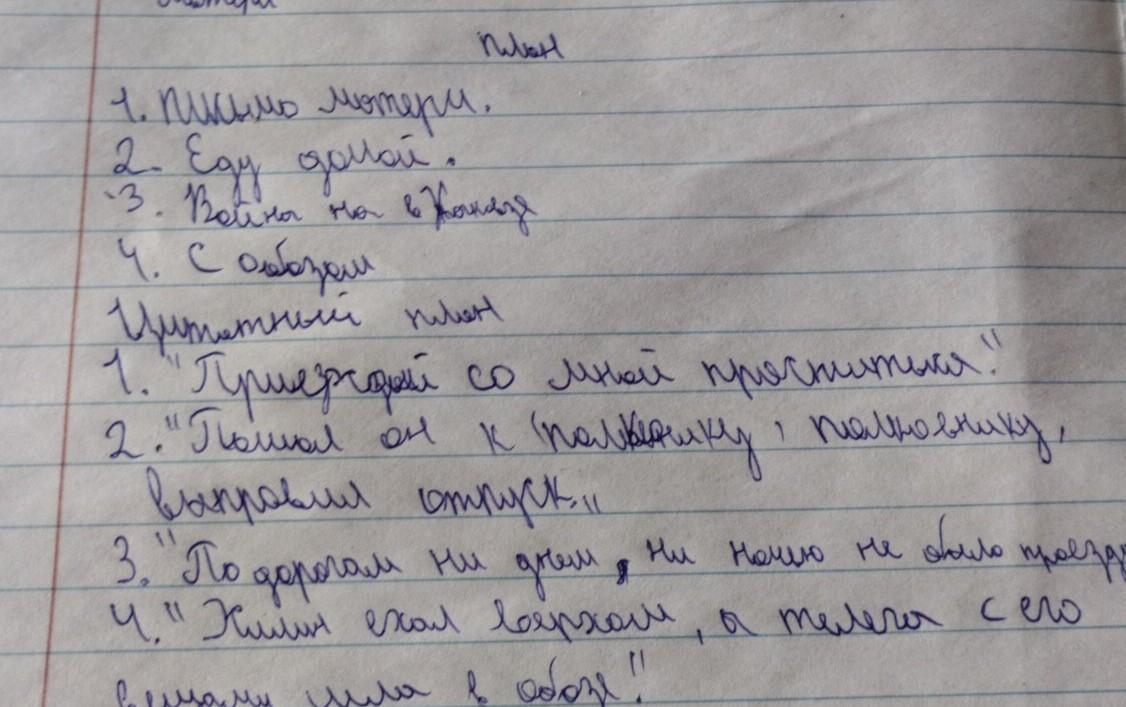 матери
план
1. письмо матери.
2. Еду домой.
3. Война на в Кавказе
4. С обозом
Цитатный план
1. "Приезжай со мной проститься."
2. "Пошол он к полковнику, полковнику,
выправил отпуск."
3. "По дорогам ни днем, ни ночью не было проезду
4. "Жилин ехал верхом, а телега с его
вещами шла в обозе."